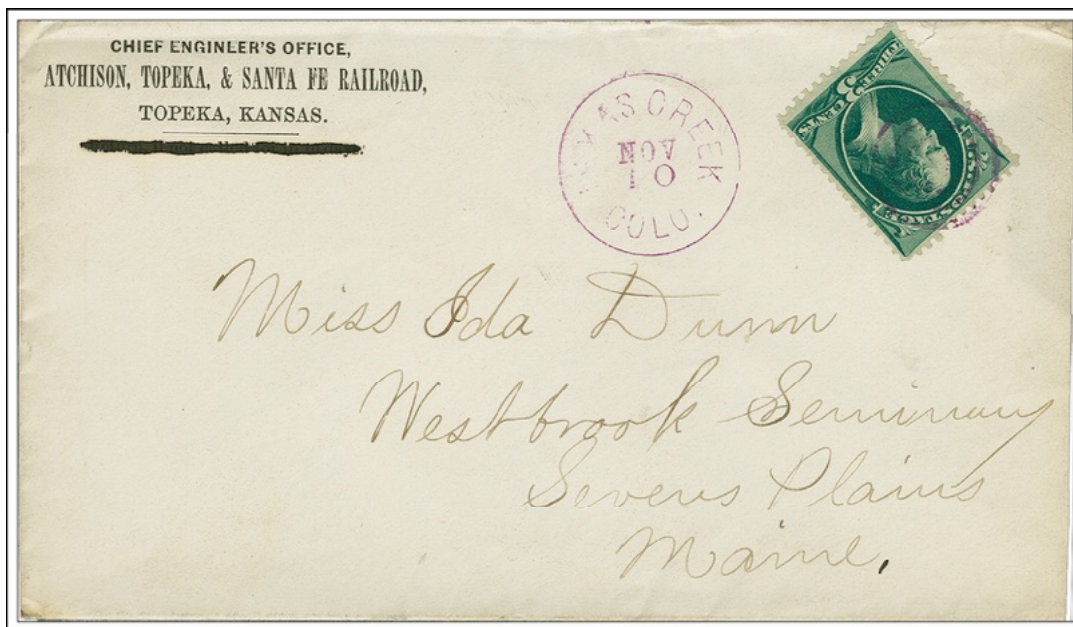 CHIEF ENGINEER'S OFFICE,
ATCHISON, TOPEKA, & SANTA FE RAILROAD,
TOPEKA, KANSAS.
TEXAS CREEK
NOV
10
COLO.
THREE 3 CENTS
U.S. POSTAGE
Miss Ida Dunn
Westbrook Seminary
Severns Plains
Maine.